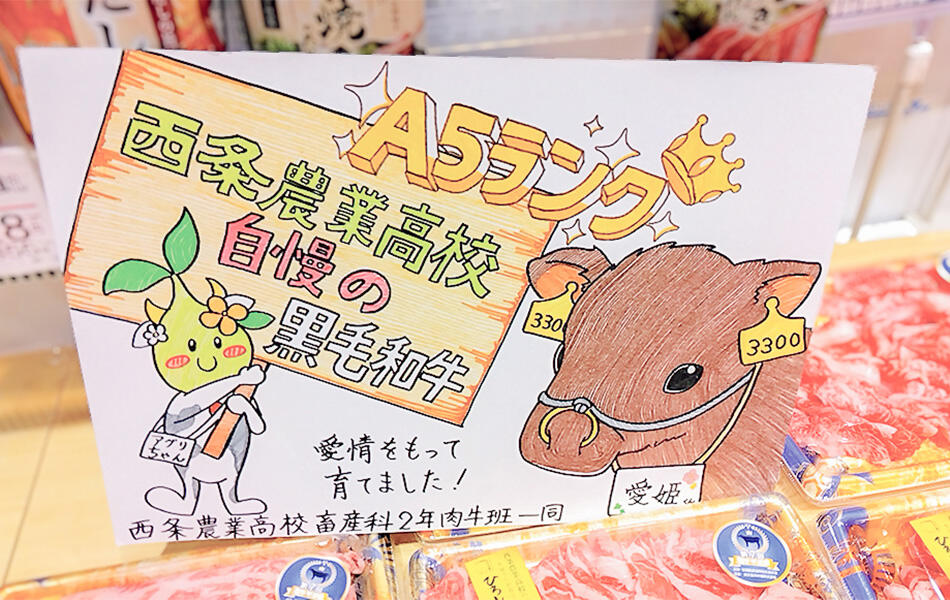 A5ランク
西条農業高校
自慢の
黒毛和牛
3300
3300
アグリ
ちゃん
愛情をもって
育てました!
愛姫
西条農業高校畜産科2年肉牛班一同